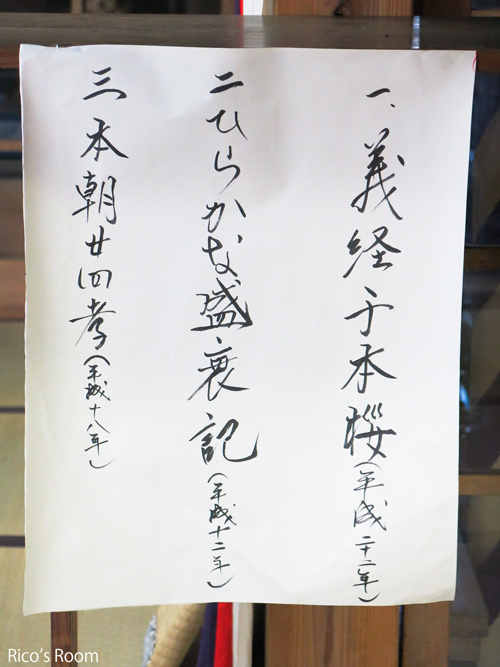 一、義経千本桜(平成二十二年)
二ひらかな盛衰記(平成十二年)
三本朝廿四孝(平成十八年)
Rico's Room